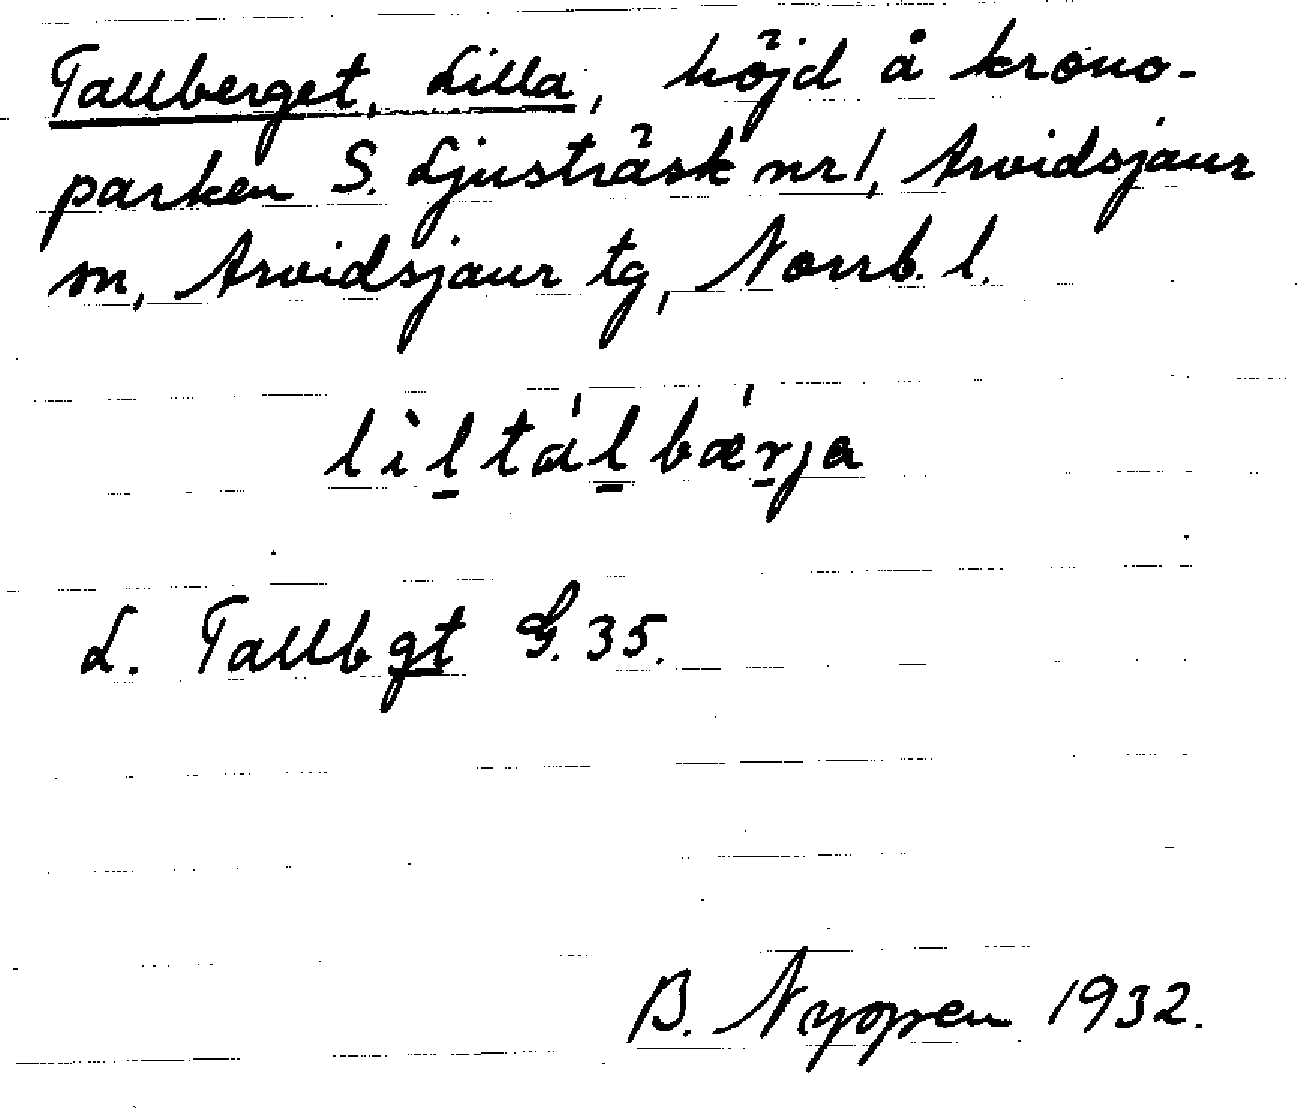 Tallberget, Lilla, höjd å krono-
parken S. Ljusträsk nr 1, Arvidsjaur
sn, Arvidsjaur tg, Norrb. l.
lìltálbærja
L. Tallbgt G. 35.
B. Nyppen 1932.